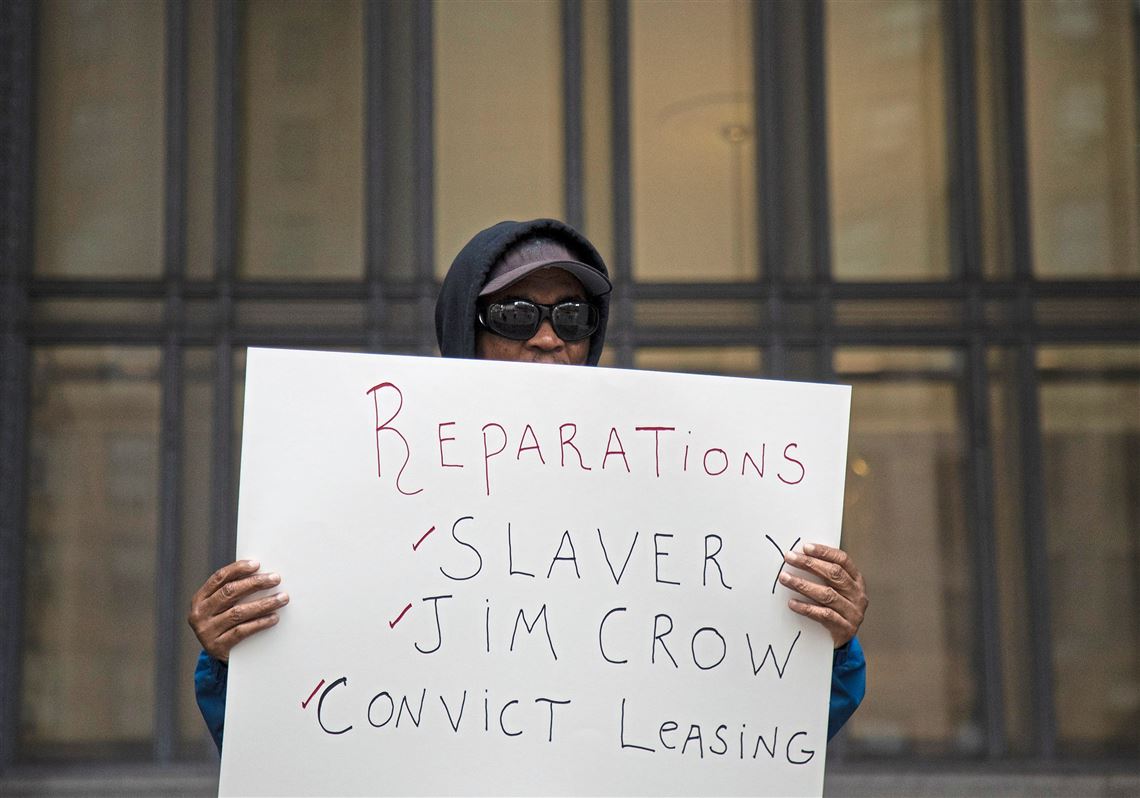 REPARATiONS
✓SLAVERY
✓JiM CROW
✓CONViCT LeASiNG